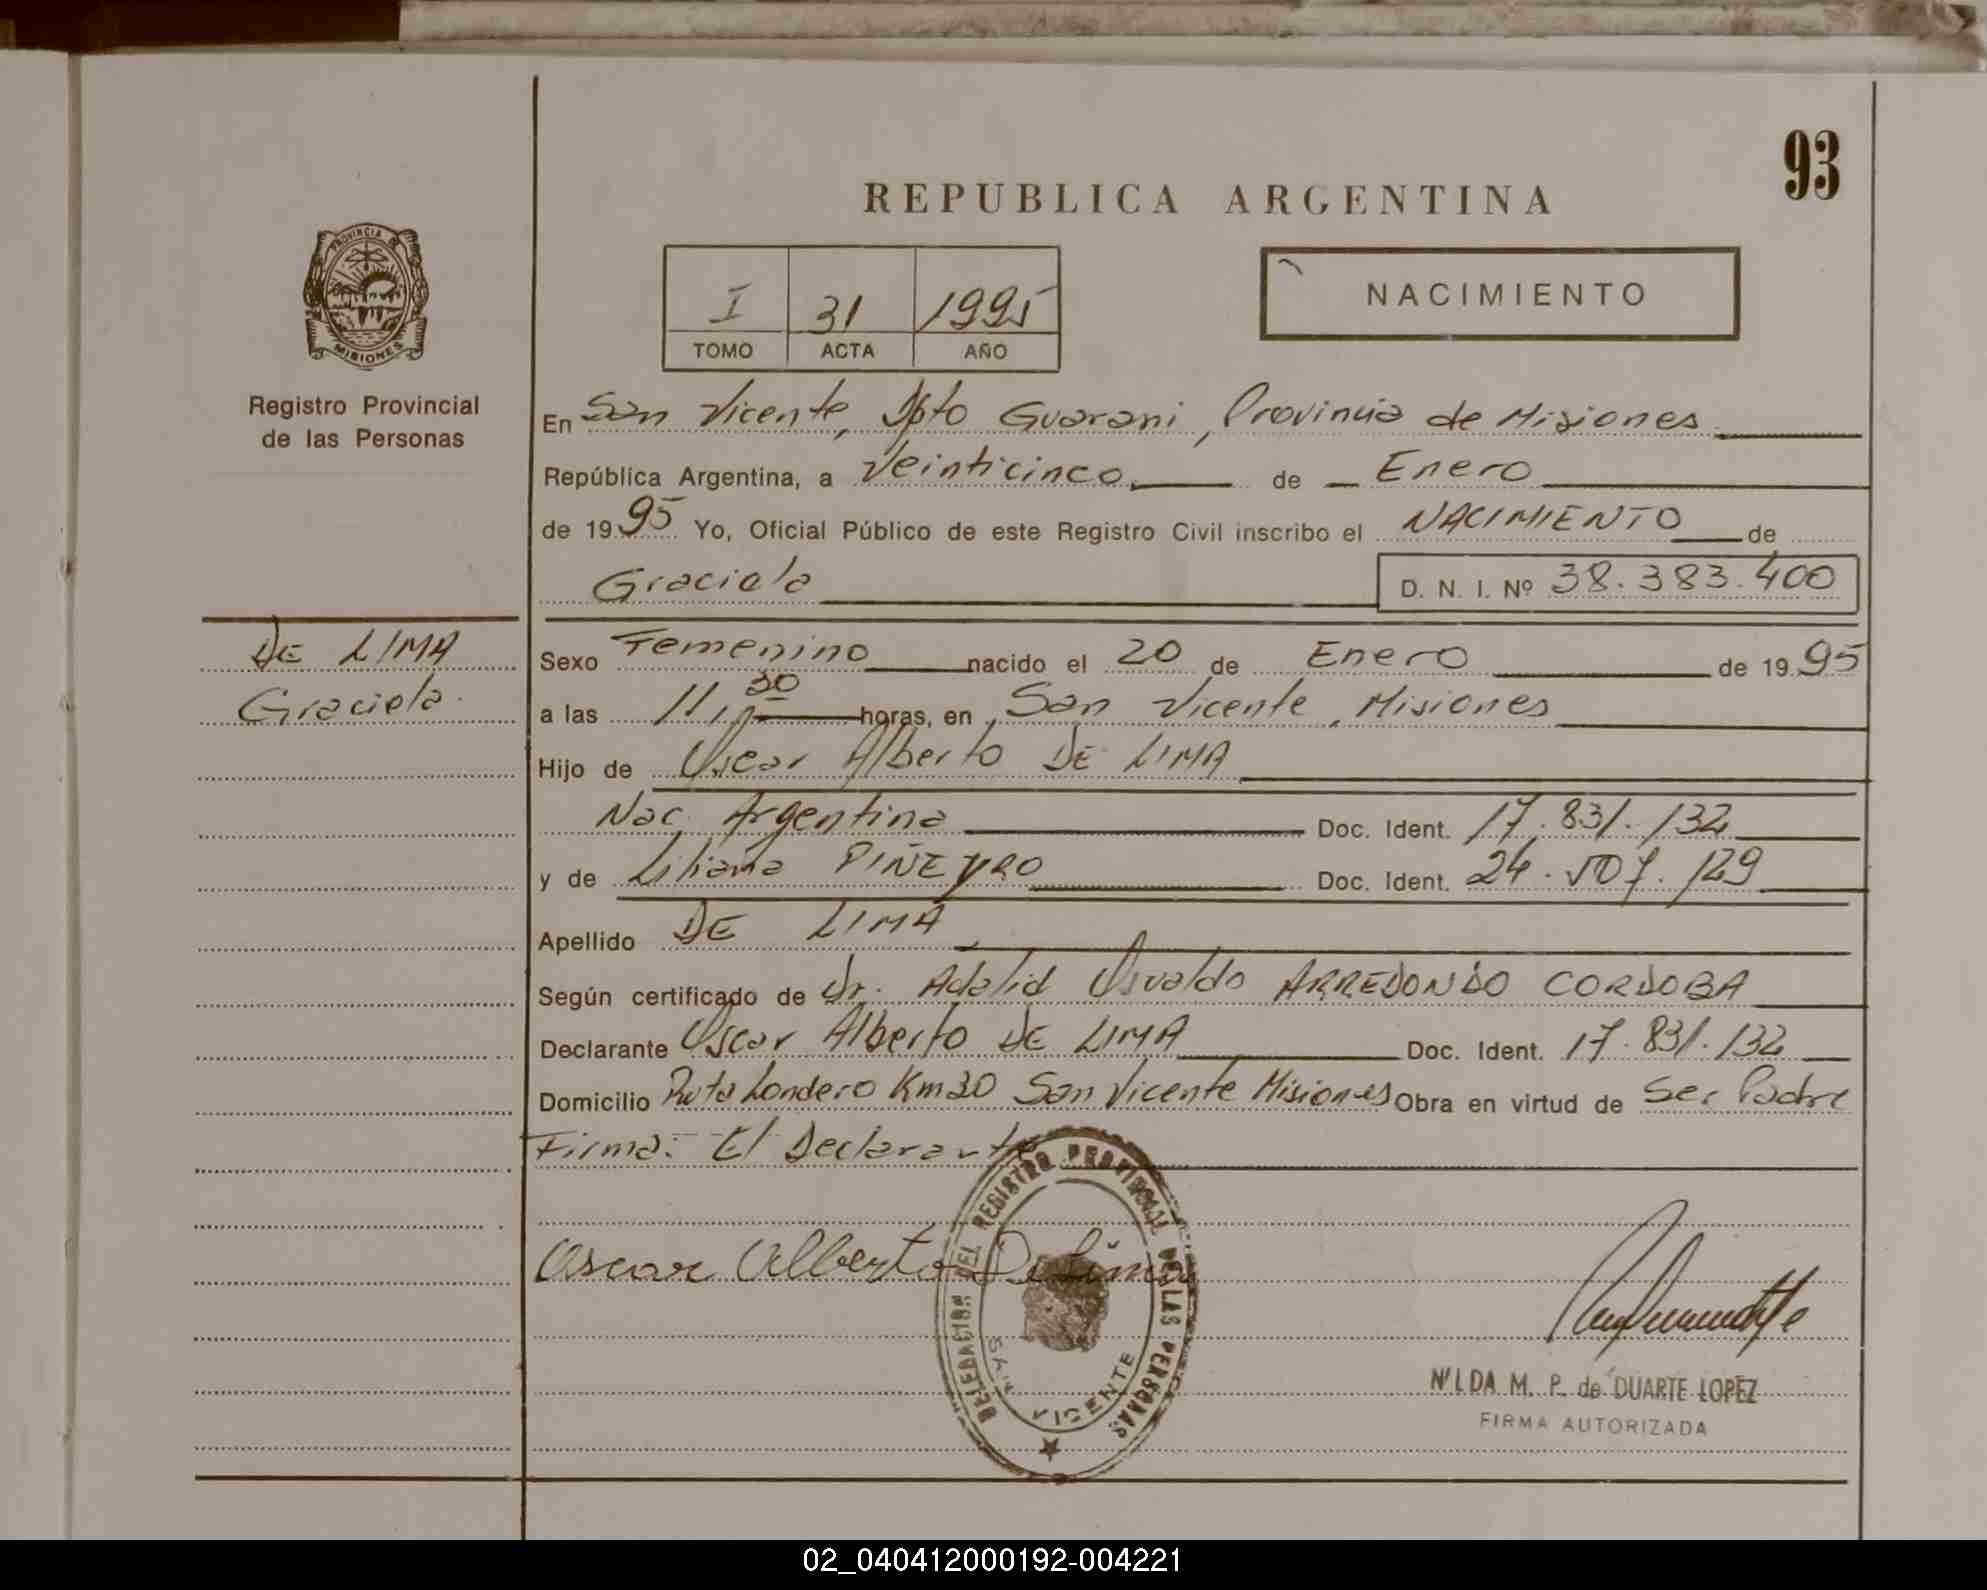 93
REPUBLICA ARGENTINA
PROVINCIA DE
MISIONES
I 31 1995
TOMO ACTA AÑO
NACIMIENTO
Registro Provincial
de las Personas
En San Vicente, Dpto Guarani, Provincia de Misiones
República Argentina, a Veinticinco de Enero
de 1995 Yo, Oficial Público de este Registro Civil inscribo el NACIMIENTO de
Graciela D. N. I. Nº 38.383.400
DE LIMA
Graciela.
Sexo Femenino nacido el 20 de Enero de 1995
a las 11,30 horas, en San Vicente, Misiones
Hijo de Oscar Alberto DE LIMA
Nac. Argentina Doc. Ident. 17.831.132
y de Liliana PIÑEYRO Doc. Ident. 24.507.129
Apellido DE LIMA
Según certificado de Dr. Adalid Osvaldo ARREDONDO CORDOBA
Declarante Oscar Alberto DE LIMA Doc. Ident. 17.831.132
Domicilio Ruta Londero Km 30 San Vicente Misiones Obra en virtud de Ser Padre
Firma: El Declarante
Oscar Alberto De Lima
DELEGACION DEL REGISTRO PROVINCIAL DE LAS PERSONAS
SAN VICENTE
NILDA M. P. de DUARTE LOPEZ
FIRMA AUTORIZADA
02_040412000192-004221